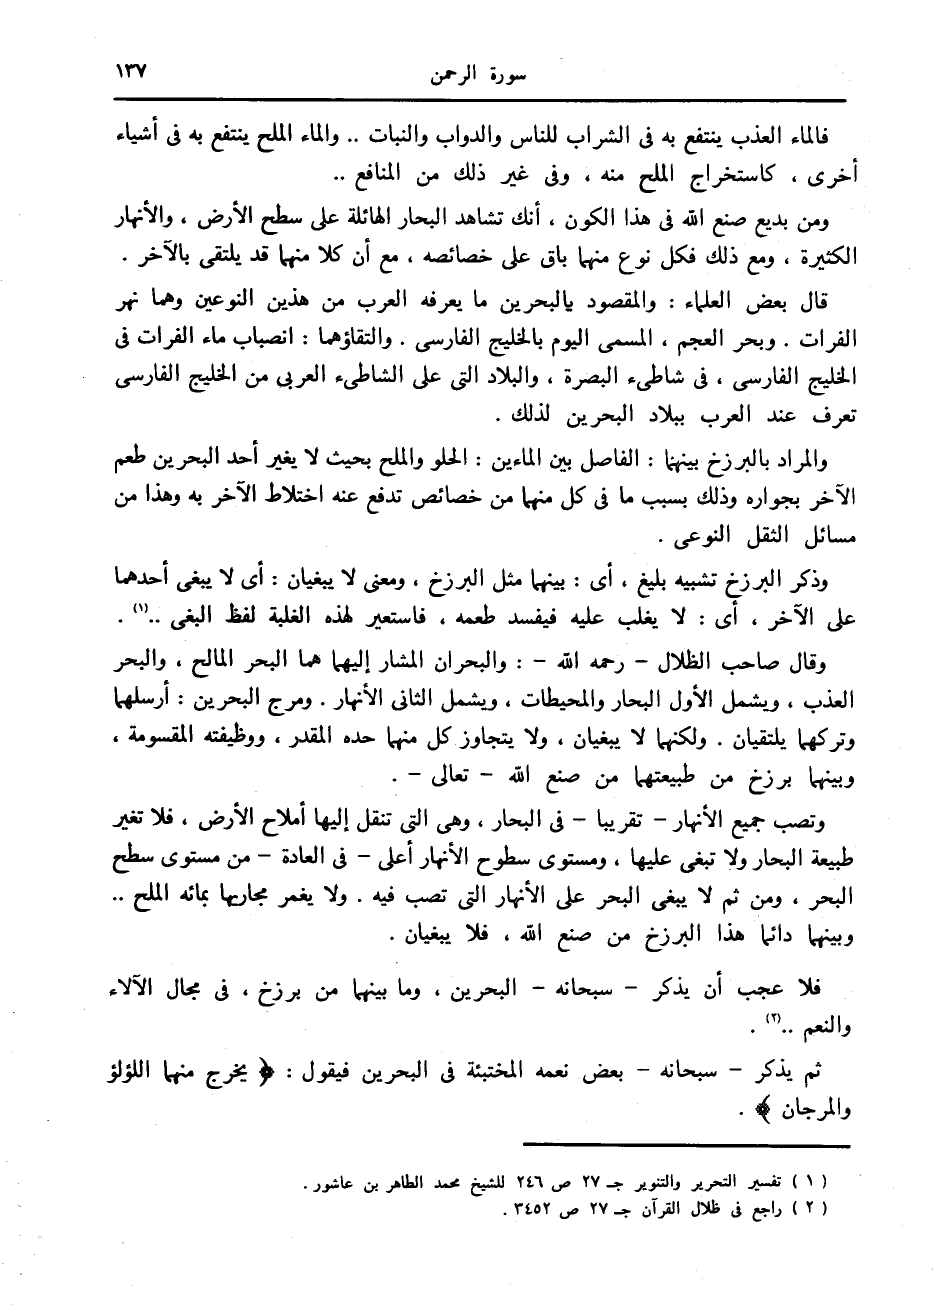 سورة الرحمن ١٣٧
فالماء العذب ينتفع به فى الشراب للناس والدواب والنبات .. والماء الملح ينتفع به فى أشياء
أخرى ، كاستخراج الملح منه ، وفى غير ذلك من المنافع ..
ومن بديع صنع الله فى هذا الكون ، أنك تشاهد البحار الهائلة على سطح الأرض ، والأنهار
الكثيرة ، ومع ذلك فكل نوع منهما باق على خصائصه ، مع أن كلا منهما قد يلتقى بالآخر .
قال بعض العلماء : والمقصود بالبحرين ما يعرفه العرب من هذين النوعين وهما نهر
الفرات . وبحر العجم ، المسمى اليوم بالخليج الفارسى . والتقاؤهما : انصباب ماء الفرات فى
الخليج الفارسى ، فى شاطىء البصرة ، والبلاد التى على الشاطىء العربى من الخليج الفارسى
تعرف عند العرب ببلاد البحرين لذلك .
والمراد بالبرزخ بينهما : الفاصل بين الماءين : الحلو والملح بحيث لا يغير أحد البحرين طعم
الآخر بجواره وذلك بسبب ما فى كل منهما من خصائص تدفع عنه اختلاط الآخر به وهذا من
مسائل الثقل النوعى .
وذكر البرزخ تشبيه بليغ ، أى : بينهما مثل البرزخ ، ومعنى لا يبغيان : أى لا يبغى أحدهما
على الآخر ، أى : لا يغلب عليه فيفسد طعمه ، فاستعير لهذه الغلبة لفظ البغى ..(١) .
وقال صاحب الظلال - رحمه الله - : والبحران المشار إليهما هما البحر المالح ، والبحر
العذب ، ويشمل الأول البحار والمحيطات ، ويشمل الثانى الأنهار . ومرج البحرين : أرسلهما
وتركهما يلتقيان . ولكنهما لا يبغيان ، ولا يتجاوز كل منهما حده المقدر ، ووظيفته المقسومة ،
وبينهما برزخ من طبيعتهما من صنع الله - تعالى - .
وتصب جميع الأنهار - تقريبا - فى البحار ، وهى التى تنقل إليها أملاح الأرض ، فلا تغير
طبيعة البحار ولا تبغى عليها ، ومستوى سطوح الأنهار أعلى - فى العادة - من مستوى سطح
البحر ، ومن ثم لا يبغى البحر على الأنهار التى تصب فيه . ولا يغمر مجاريها بمائه الملح ..
وبينهما دائما هذا البرزخ من صنع الله ، فلا يبغيان .
فلا عجب أن يذكر - سبحانه - البحرين ، وما بينهما من برزخ ، فى مجال الآلاء
والنعم ..(٢) .
ثم يذكر - سبحانه - بعض نعمه المختبئة فى البحرين فيقول : ﴿ يخرج منهما اللؤلؤ
والمرجان ﴾ .
( ١ ) تفسير التحرير والتنوير جـ ٢٧ ص ٢٤٦ للشيخ محمد الطاهر بن عاشور .
( ٢ ) راجع فى ظلال القرآن جـ ٢٧ ص ٣٤٥٢ .